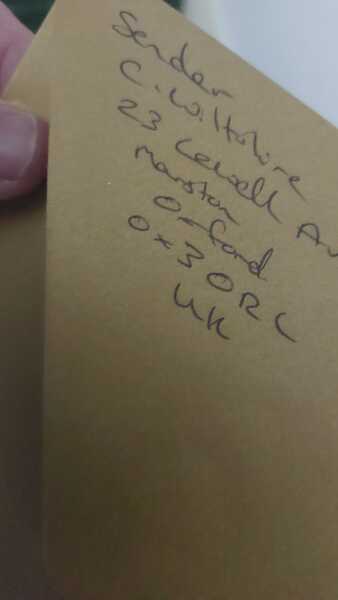 Sender
C. Wiltshire
23 Lewell Av
Marston
Oxford
OX3 0RL
UK